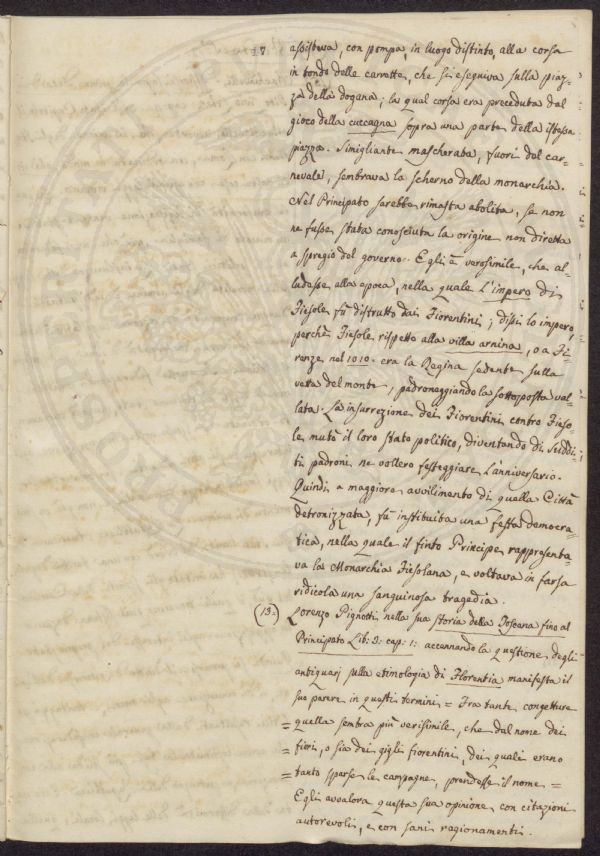 17
assisteva, con pompa, in luogo distinto, alla corsa
in tondo delle carrette, che si eseguiva sulla piaz-
za della dogana; la qual corsa era preceduta dal
gioco della cuccagna sopra una parte della istessa
piazza. Simigliante mascherata, fuori del car-
nevale, sembrava lo scherno della monarchia.
Nel Principato sarebbe rimasta abolita, se non
ne fusse stata conosciuta la origine non diretta
a spregio del governo. Egli è verosimile, che al-
ludesse alla epoca, nella quale l'impero di
Fiesole fù distrutto dai Fiorentini; dissi lo impero,
perchè Fiesole rispetto alla villa arnina, o a Fi-
renze nel 1010. era la Regina sedente sulla
vetta del monte, padroneggiando la sottoposta val-
lata. La insurrezione dei Fiorentini contro Fieso-
le mutò il loro stato politico, diventando di suddi-
ti padroni ne vollero festeggiare l'anniversario.
Quindi a maggiore avvilimento di quella Città
detronizzata, fù instituita una festa democra-
tica, nella quale il finto Principe rappresenta-
va la Monarchia Fiesolana, e voltava in farsa
ridicola una sanguinosa tragedia.
(13.) Lorenzo Pignotti nella sua storia della Toscana fino al
Principato Lib: 3: cap: 1: accennando la questione degli
antiquarj sulla etimologia di Florentia manifesta il
suo parere in questi termini = Fra tante congetture
= quella sembra più verisimile, che dal nome dei
= fiori, o sia dei gigli fiorentini, dei quali erano
= tanto sparse le campagne, prendesse il nome =
Egli avvalora questa sua opinione con citazioni
autorevoli, e con sani ragionamenti.